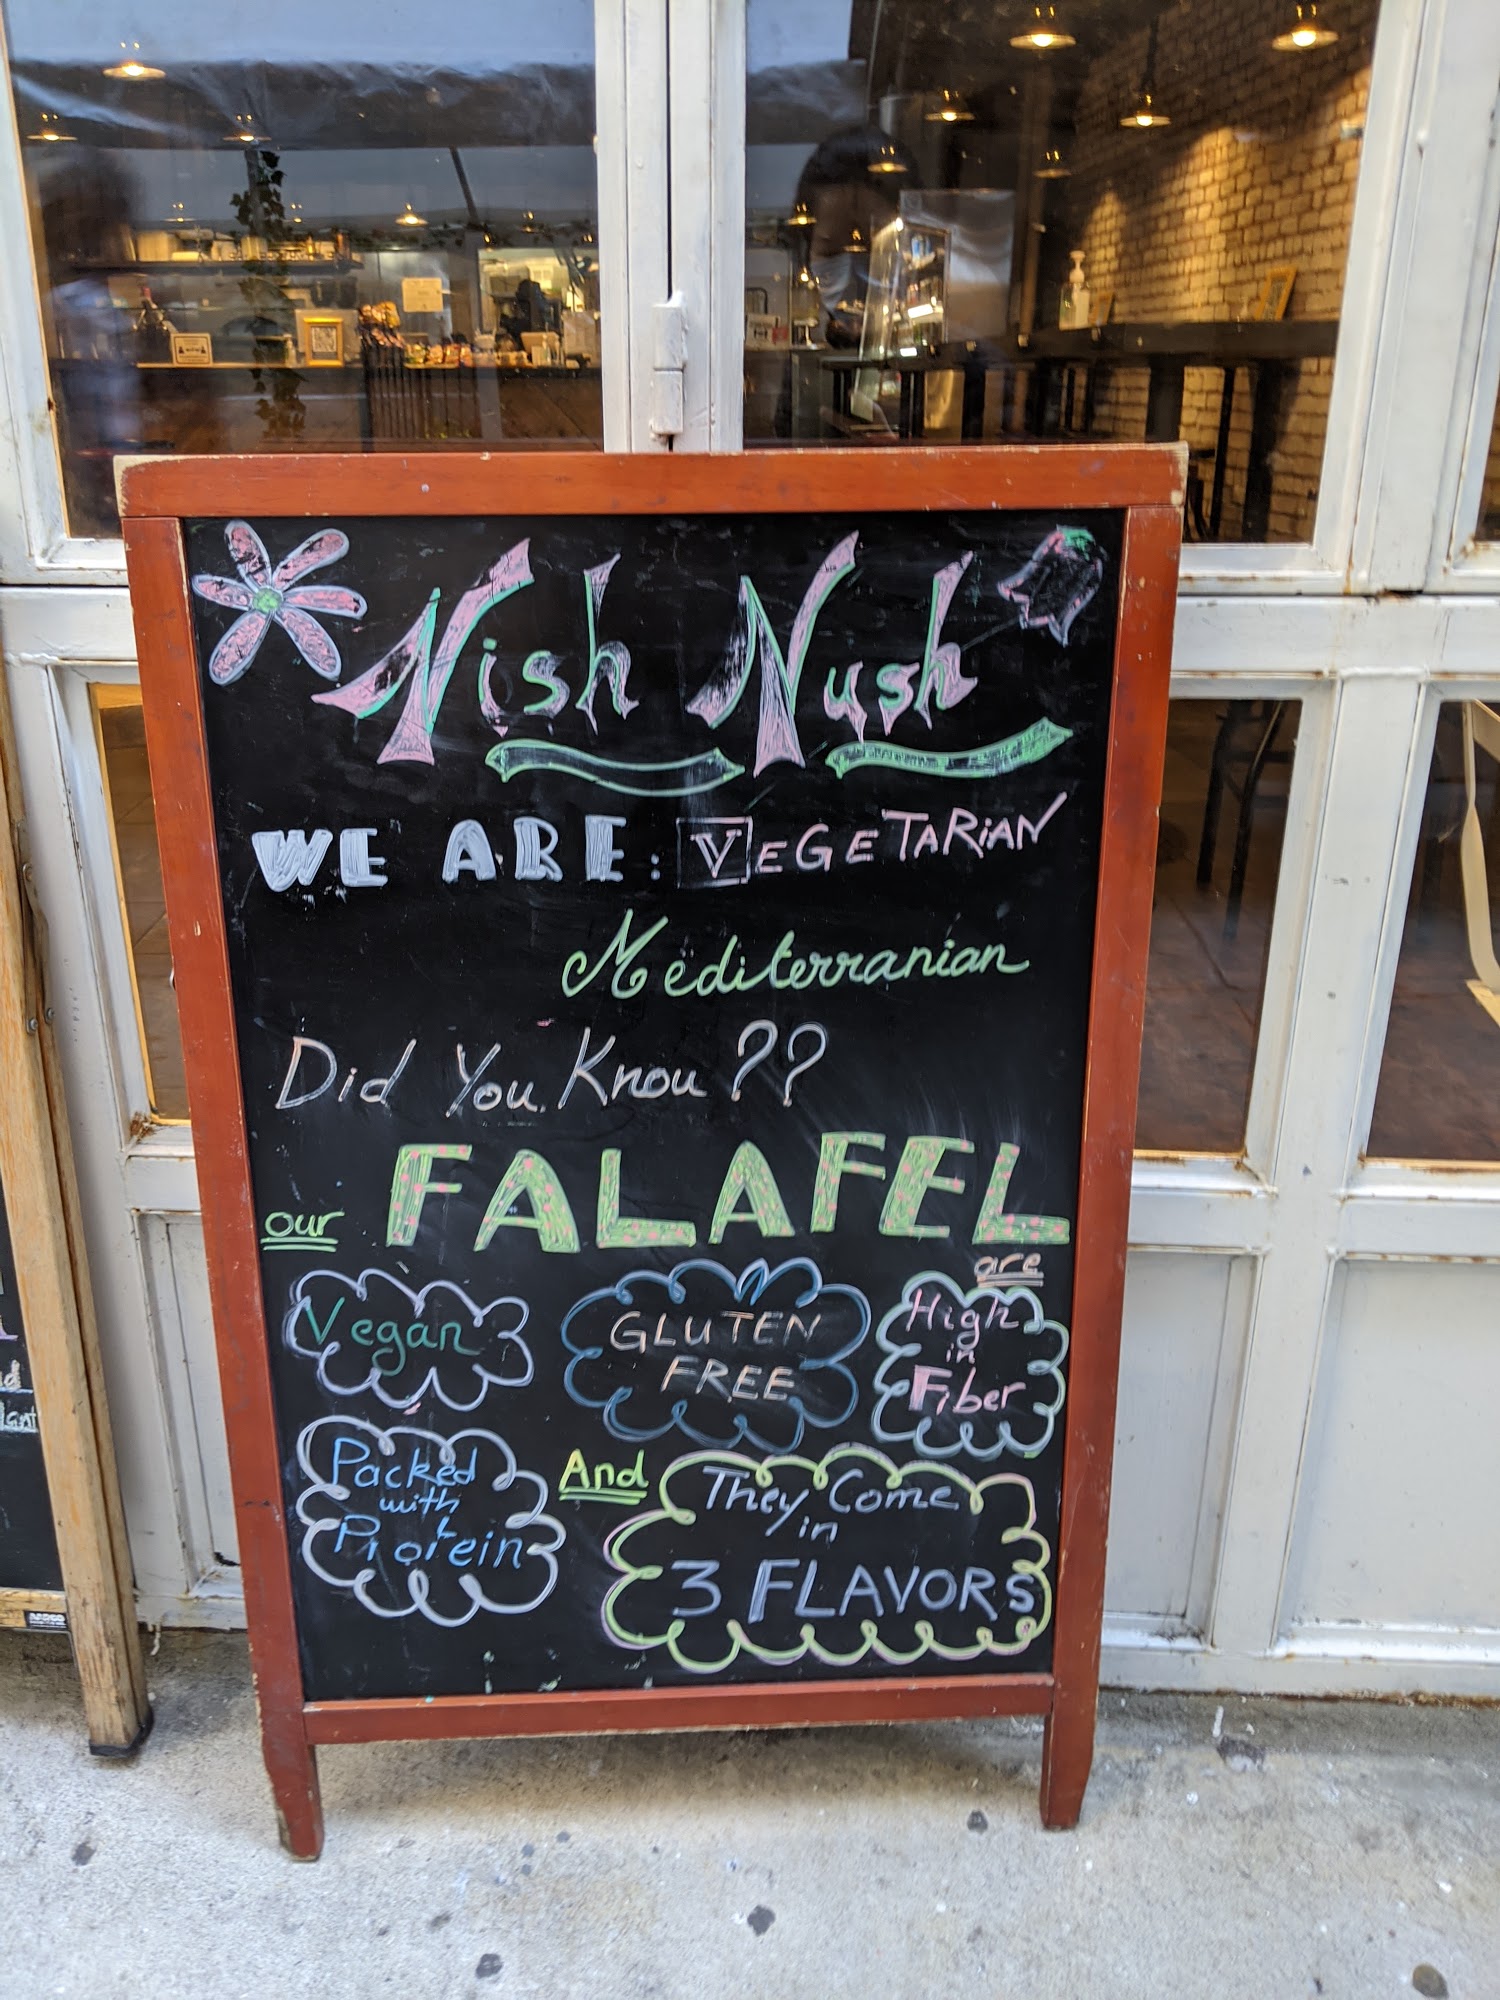 Nish Nush
WE ARE: VEGETARiAN
Mediterranian
Did You Know??
our FALAFEL
are
Vegan
GLUTEN
FREE
High
in
Fiber
Packed
with
Protein
And
They Come
in
3 FLAVORS